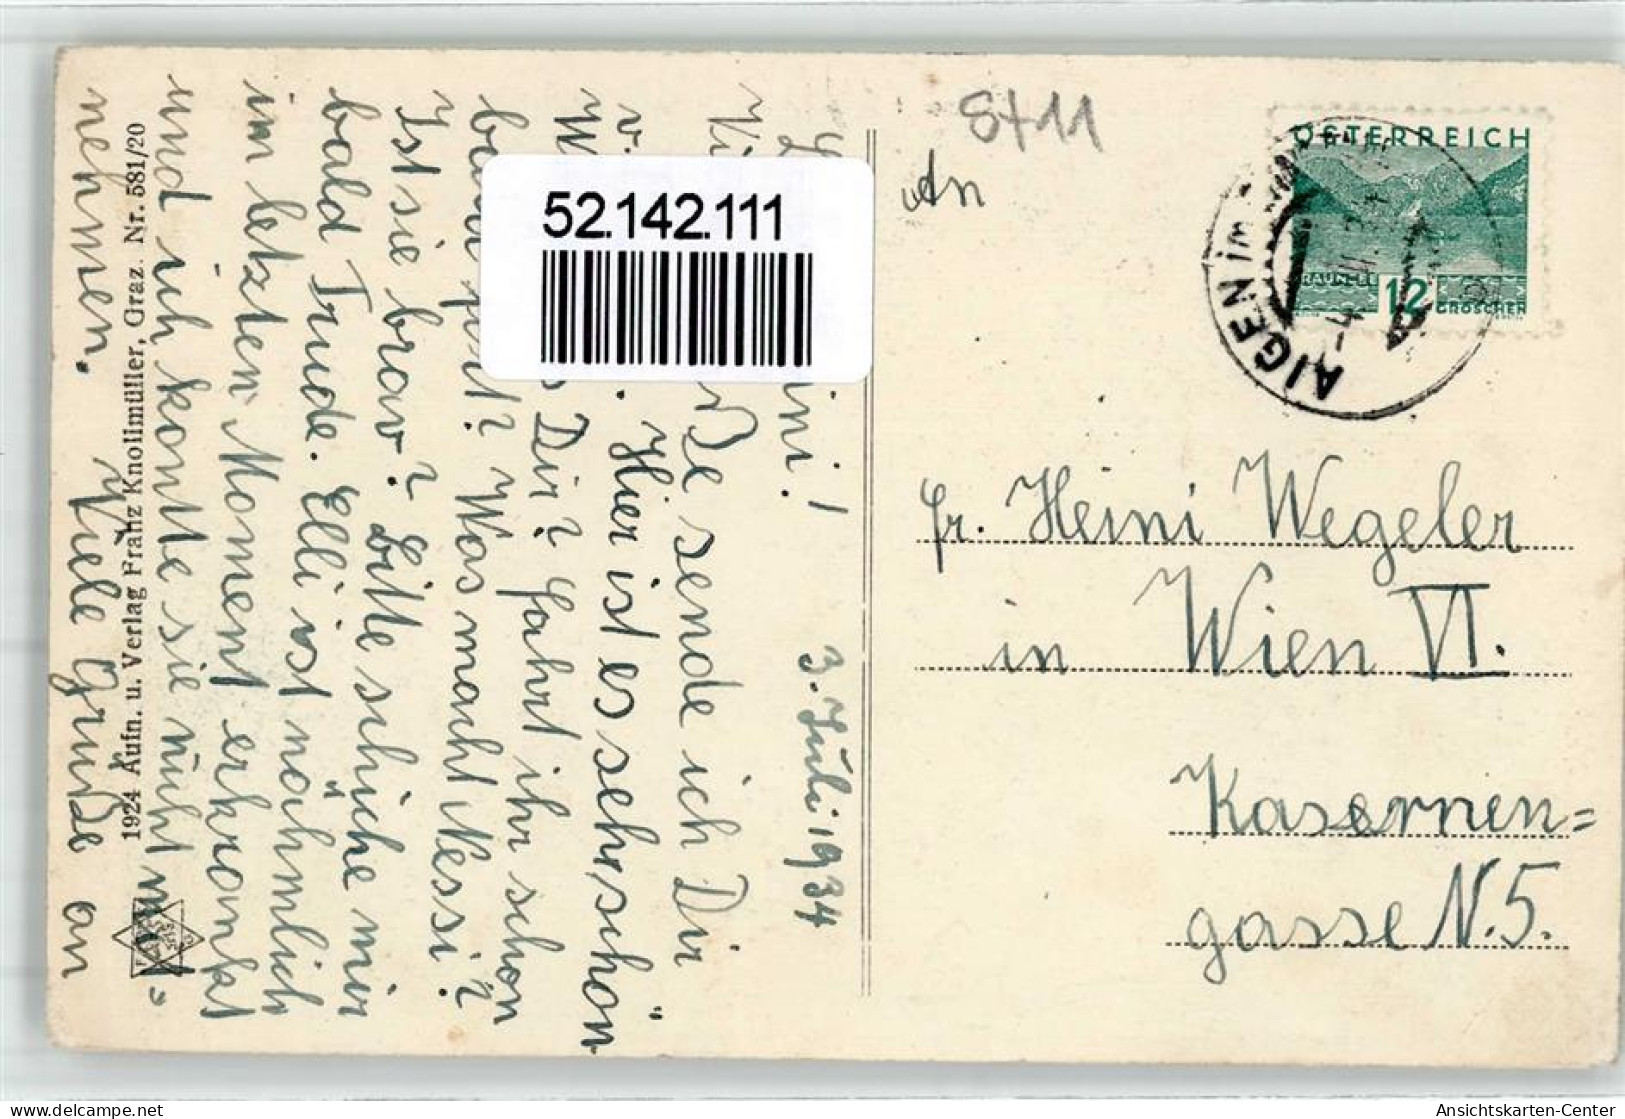 52.142.111
8711
ÖSTERREICH
TRAUNSEE
12
GROSCHEN
AIGEN im
An
Fr. Heini Wegeler
in Wien VI.
Kasernen=
gasse N. 5.
3. Juli 1934
ini!
sende ich Dir
Hier ist es sehr, schön
Dir? Fahrt ihr schon
Was macht Nessi?
Ist sie brav? Bitte schücke mir
bald Trude. Elli ist nähmlich
im letzten Moment erkrankt
und ich konnte sie nücht m,,
nehmen. Viele Grüße an
1924 Aufn. u. Verlag Franz Knollmüller, Graz. Nr. 581/20
delcampe.net
Ansichtskarten-Center